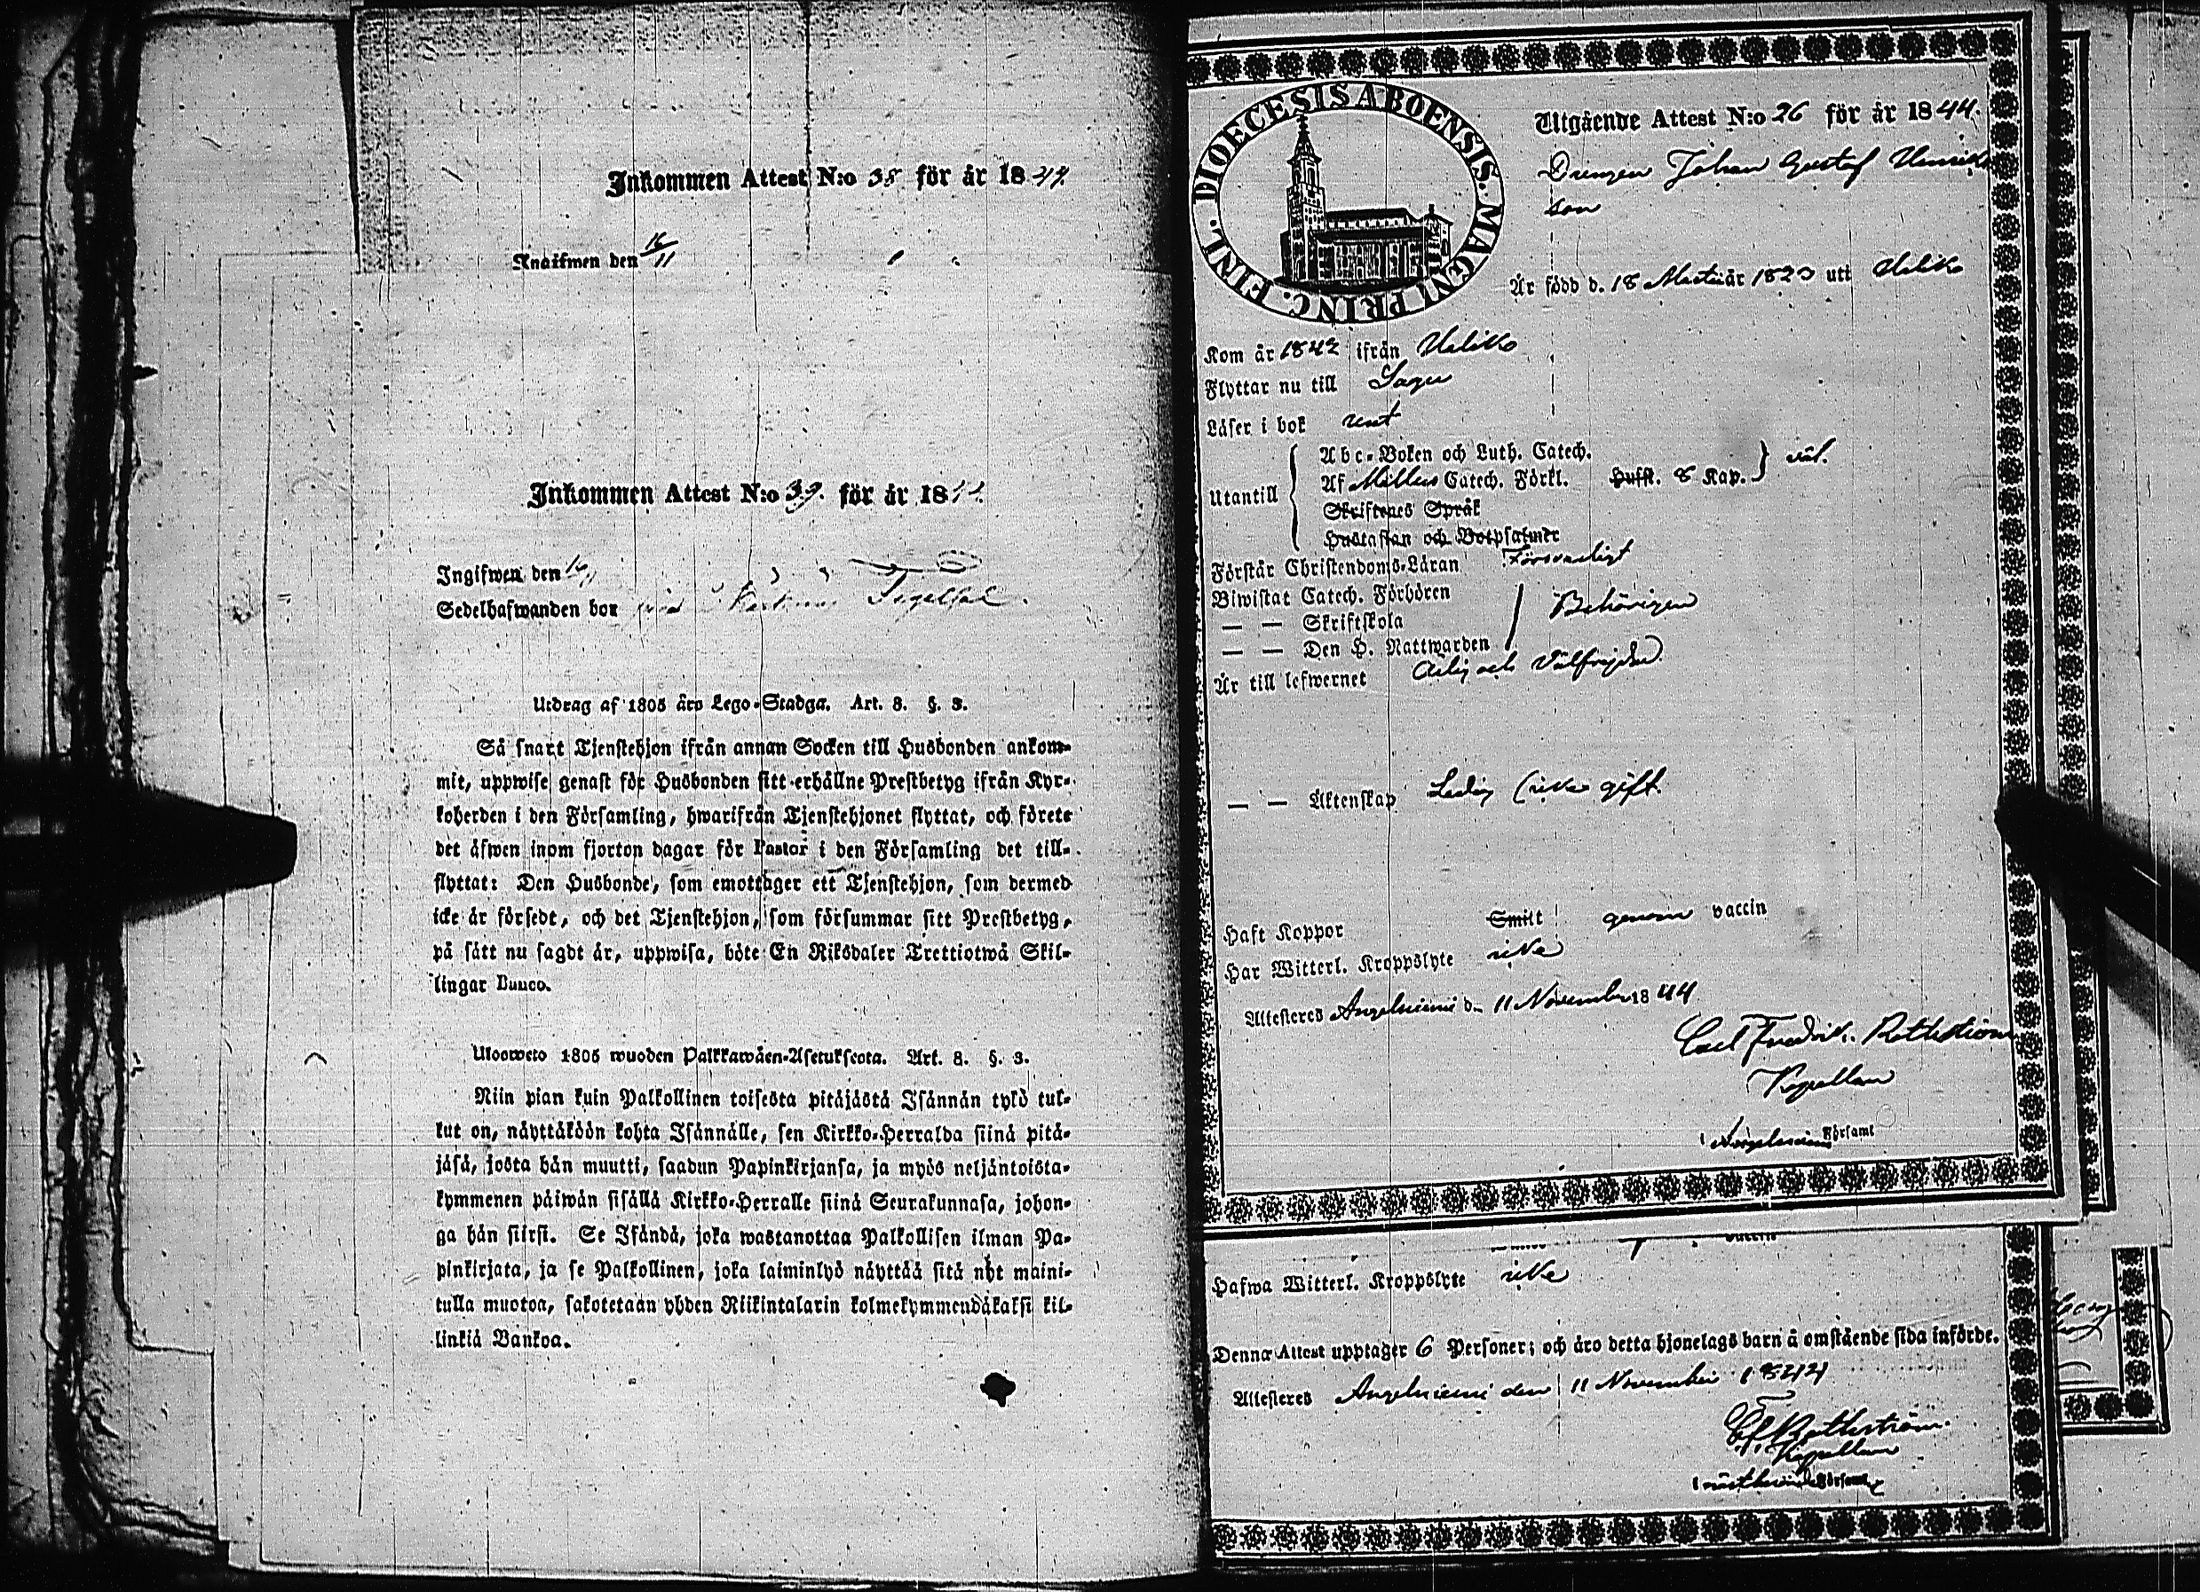 Inkommen Attest N:o 38 för år 1844.
den 16/11
Inkommen Attest N:o 39. för år 18
Ingifwen den
Sedelhafwanden bor
Utdrag af 1805 års Lego-Stadga. Art. 8. §. 3.
Så snart Tjenstehjon ifrån annan Socken till Husbonden ankom-
mit, uppwise genast för Husbonden sitt erhållne Prestbetyg ifrån Kyr-
koherden i den Församling, hwarifrån Tjenstehjonet flyttat, och förete
det äfwen inom fjorton dagar för Pastor i den Församling det till-
flyttat: Den Husbonde, som emottager ett Tjenstehjon, som dermed
icke är försedt, och det Tjenstehjon, som försummar sitt Prestbetyg,
på sätt nu sagdt är, uppwisa, böte En Riksdaler Trettiotwå Skil-
lingar Banco.
Ulosweto 1805 wuoden Palkkawäen-Asetuksesta. Art. 8. §. 3.
Niin pian kuin Palkollinen toisesta pitäjästä Isännän tykö tul-
kut on, näyttäköön kohta Isännälle, sen Kirkko-Herralda siinä pitä-
jäsä, josta hän muutti, saadun Papinkirjansa, ja myös neljäntoista-
kymmenen päiwän sisällä Kirkko-Herralle siinä Seurakunnasa, johon-
ga hän siirsi. Se Isändä, joka wastanottaa Palkollisen ilman Pa-
pinkirjata, ja se Palkollinen, joka laiminlyö näyttää sitä nyt maini-
tulla muotoa, sakotetaan yhden Riikintalarin kolmekymmendäkaksi kil-
linkiä Bankoa.
DIOECESIS ABOENSIS. MAGNI PRINC. FINL.
Utgående Attest N:o 26 för år 1844.
Drengen Johan Gustaf Henriks
son
Är född d. 18 Martii år 1823 uti Haliko
Kom år 1842 ifrån Haliko
Flyttar nu till Sagu
Läser i bok rent
Utantill
Abc-Boken och Luth. Catech.
Af Möllers Catech. Förkl. Hufst. 8 Kap. väl.
Skriftenes Språk
Hustaflan och Botpsalmer
Förstår Christendoms-Läran Försvarligt
Biwistat Catech. Förhören
— — Skriftskola Behörigen
— — Den H. Nattwarden
Är till lefwernet Ärlig och Välfrejdad.
— — Äktenskap Ledig (icke gift.
Haft Koppor Smitt genom vaccin
Har Witterl. Kroppslyte icke
Attesteres Angelniemi d. 11 November 1844
Carl Fredrik Rothström
Kapellan
i Angelniemi Församl
Hafwa Witterl. Kroppslyte icke
Denna Attest upptager 6 Personer; och äro detta hjonelags barn å omstående sida införde.
Attesteres Angelniemi den 11 November 1844
C. F. Rothström
Kapellan
Församl